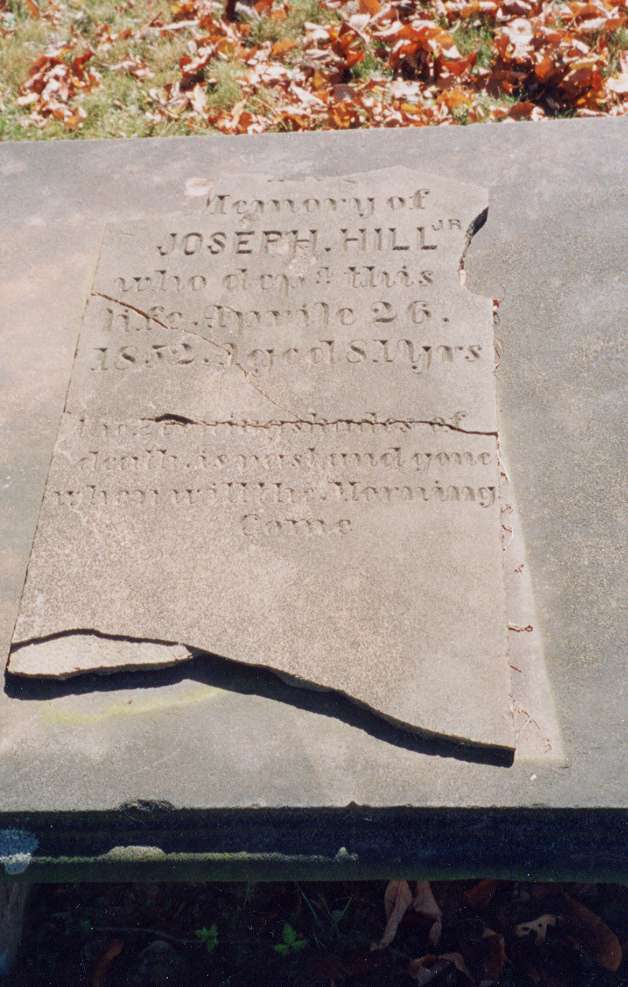 Memory of
JOSEPH. HILL JR
who dep.d this
life. Aprile 26.
1852. Aged 81 yrs
the evening shades of
death. is past and gone
when will the. Morning
Come